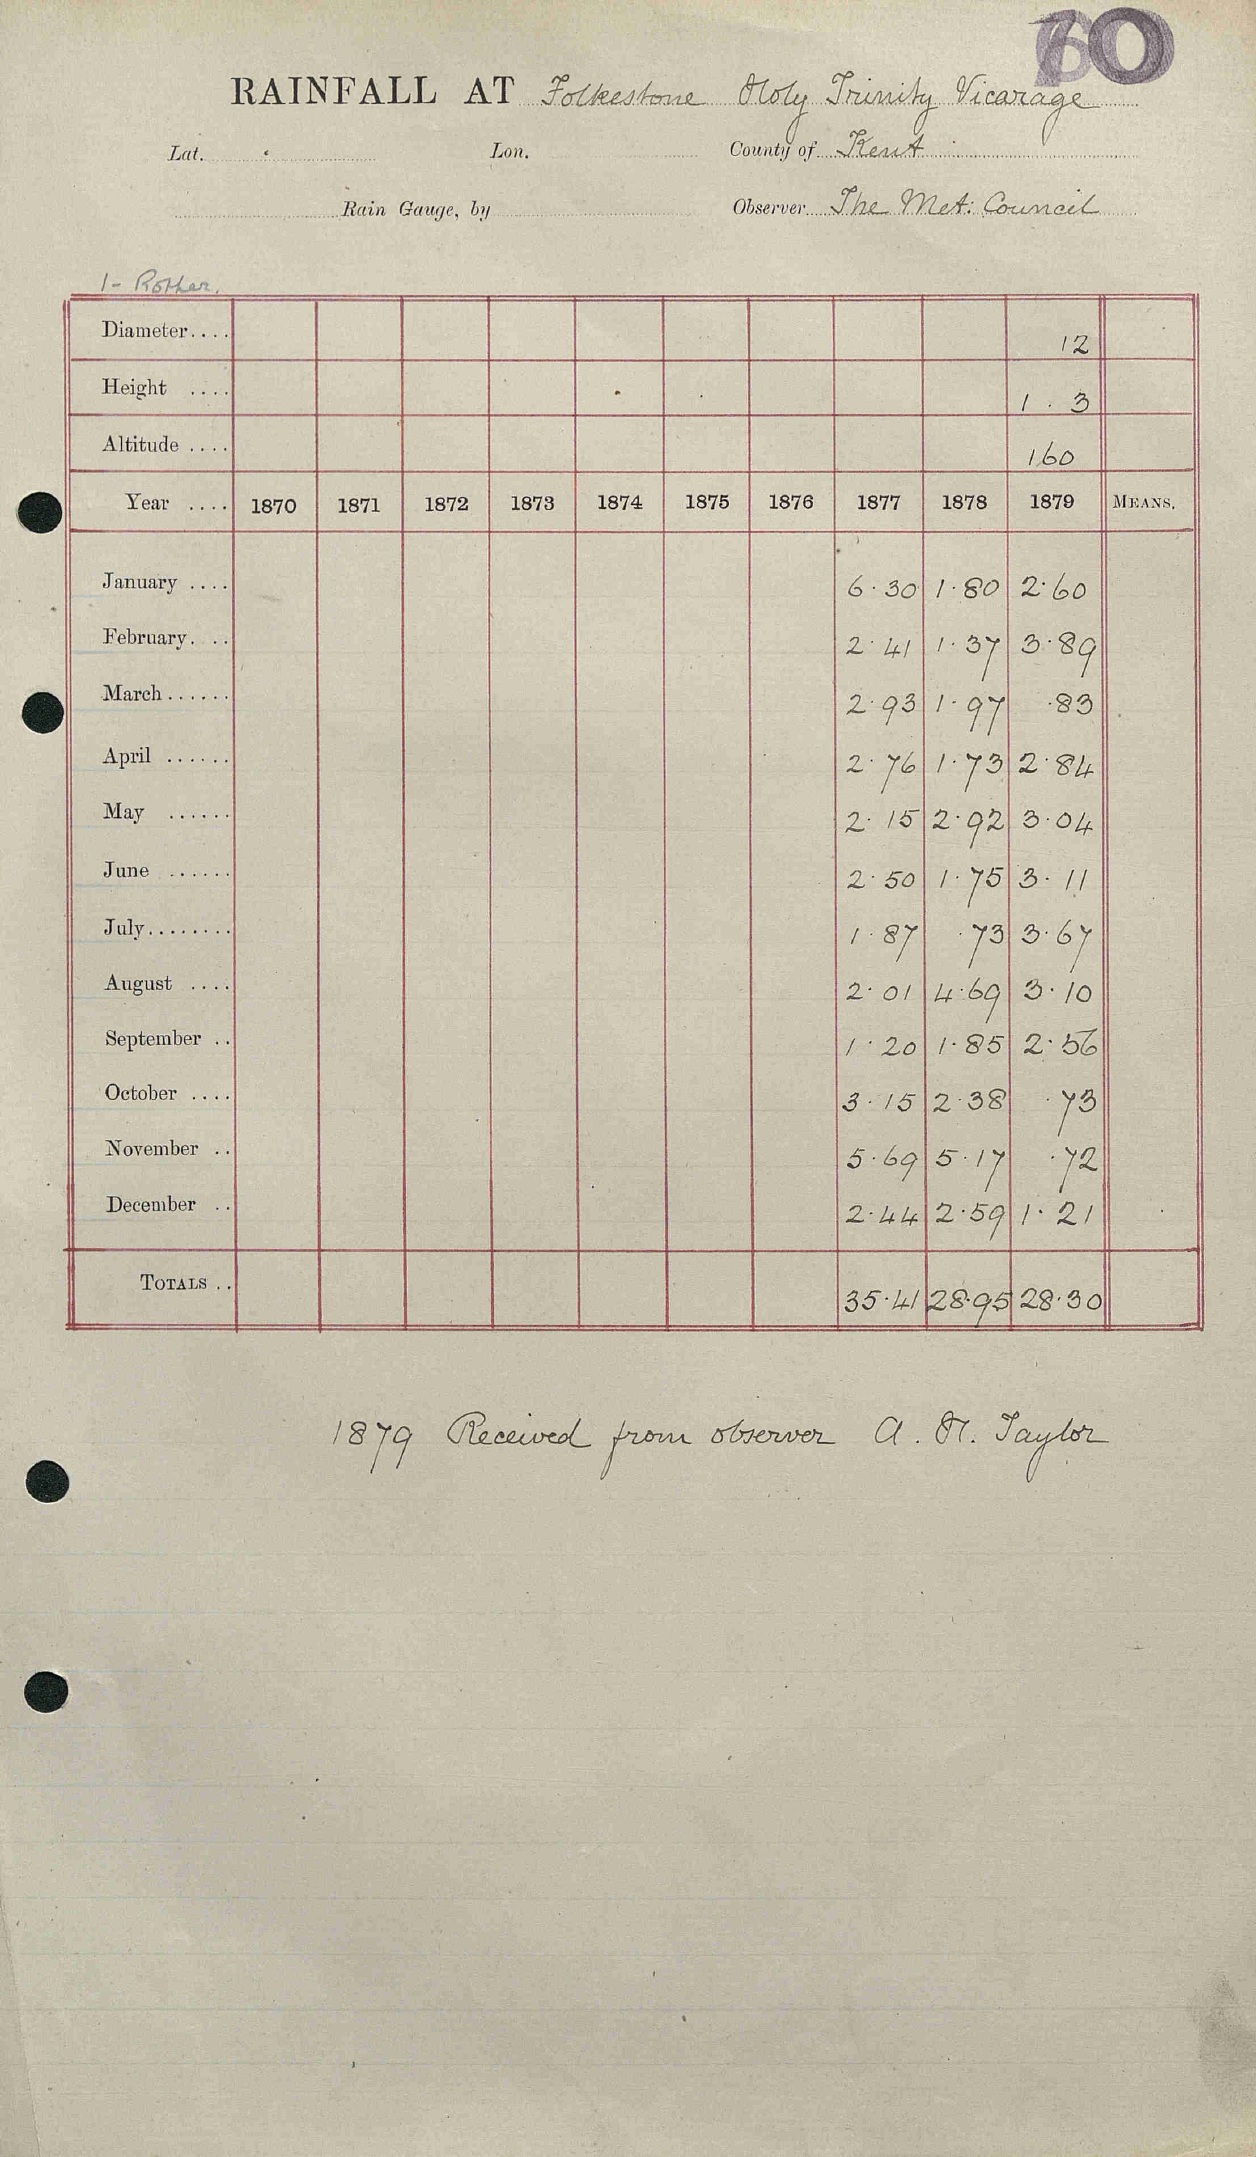 RAINFALL AT Folkestone Holy Trinity Vicarage
Lat. Lon. County of Kent
Rain Gauge, by Observer The Met. Council
1 - Rother.
Diameter.... 12
Height .... 1 . 3
Altitude .... 160
Year .... 1870 1871 1872 1873 1874 1875 1876 1877 1878 1879 MEANS.
January .... 6.30 1.80 2.60
February. .. 2.41 1.37 3.89
March...... 2.93 1.97 .83
April ...... 2.76 1.73 2.84
May ...... 2.15 2.92 3.04
June ...... 2.50 1.75 3.11
July........ 1.87 .73 3.67
August .... 2.01 4.69 3.10
September .. 1.20 1.85 2.56
October .... 3.15 2.38 .73
November .. 5.69 5.17 .72
December .. 2.44 2.59 1.21
TOTALS .. 35.41 28.95 28.30
1879 Received from observer A. H. Taylor